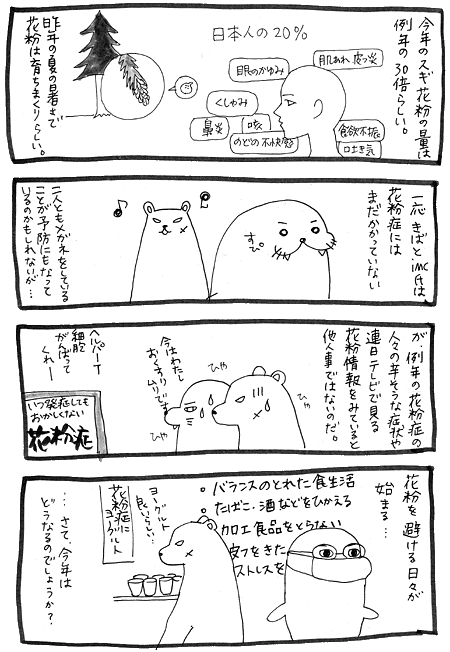 今年のスギ花粉の量は
例年の30倍らしい。
日本人の20%
肌あれ 皮ふ炎
眼のかゆみ
くしゃみ
鼻炎
咳
のどの不快感
食欲不振
吐き気
昨年の夏の暑さで
花粉は育ちまくりらしい。
一応 きばとimc氏は
花粉症には
まだかかっていない
すぴ。
二人ともメガネをしている
ことが予防にもなって
いるのかもしれないが…
が、例年の花粉症の
人々の辛そうな症状や
連日テレビで見る
花粉情報をみていると
他人事ではないのだ。
ひや
ひや
今はわたし
おくすりムリです
ひや
ヘルパーT
細胞
がんばって
くれー
いつ発症しても
おかしくない
花粉症
花粉を避ける日々が
始まる…
・バランスのとれた食生活
・たばこ、酒などをひかえる
・加工食品をとらない
皮フをきた
ストレスを
ヨーグルト
良いらしい…
花粉症に
ヨーグルト
…さて、今年は
どうなるのでしょうか？